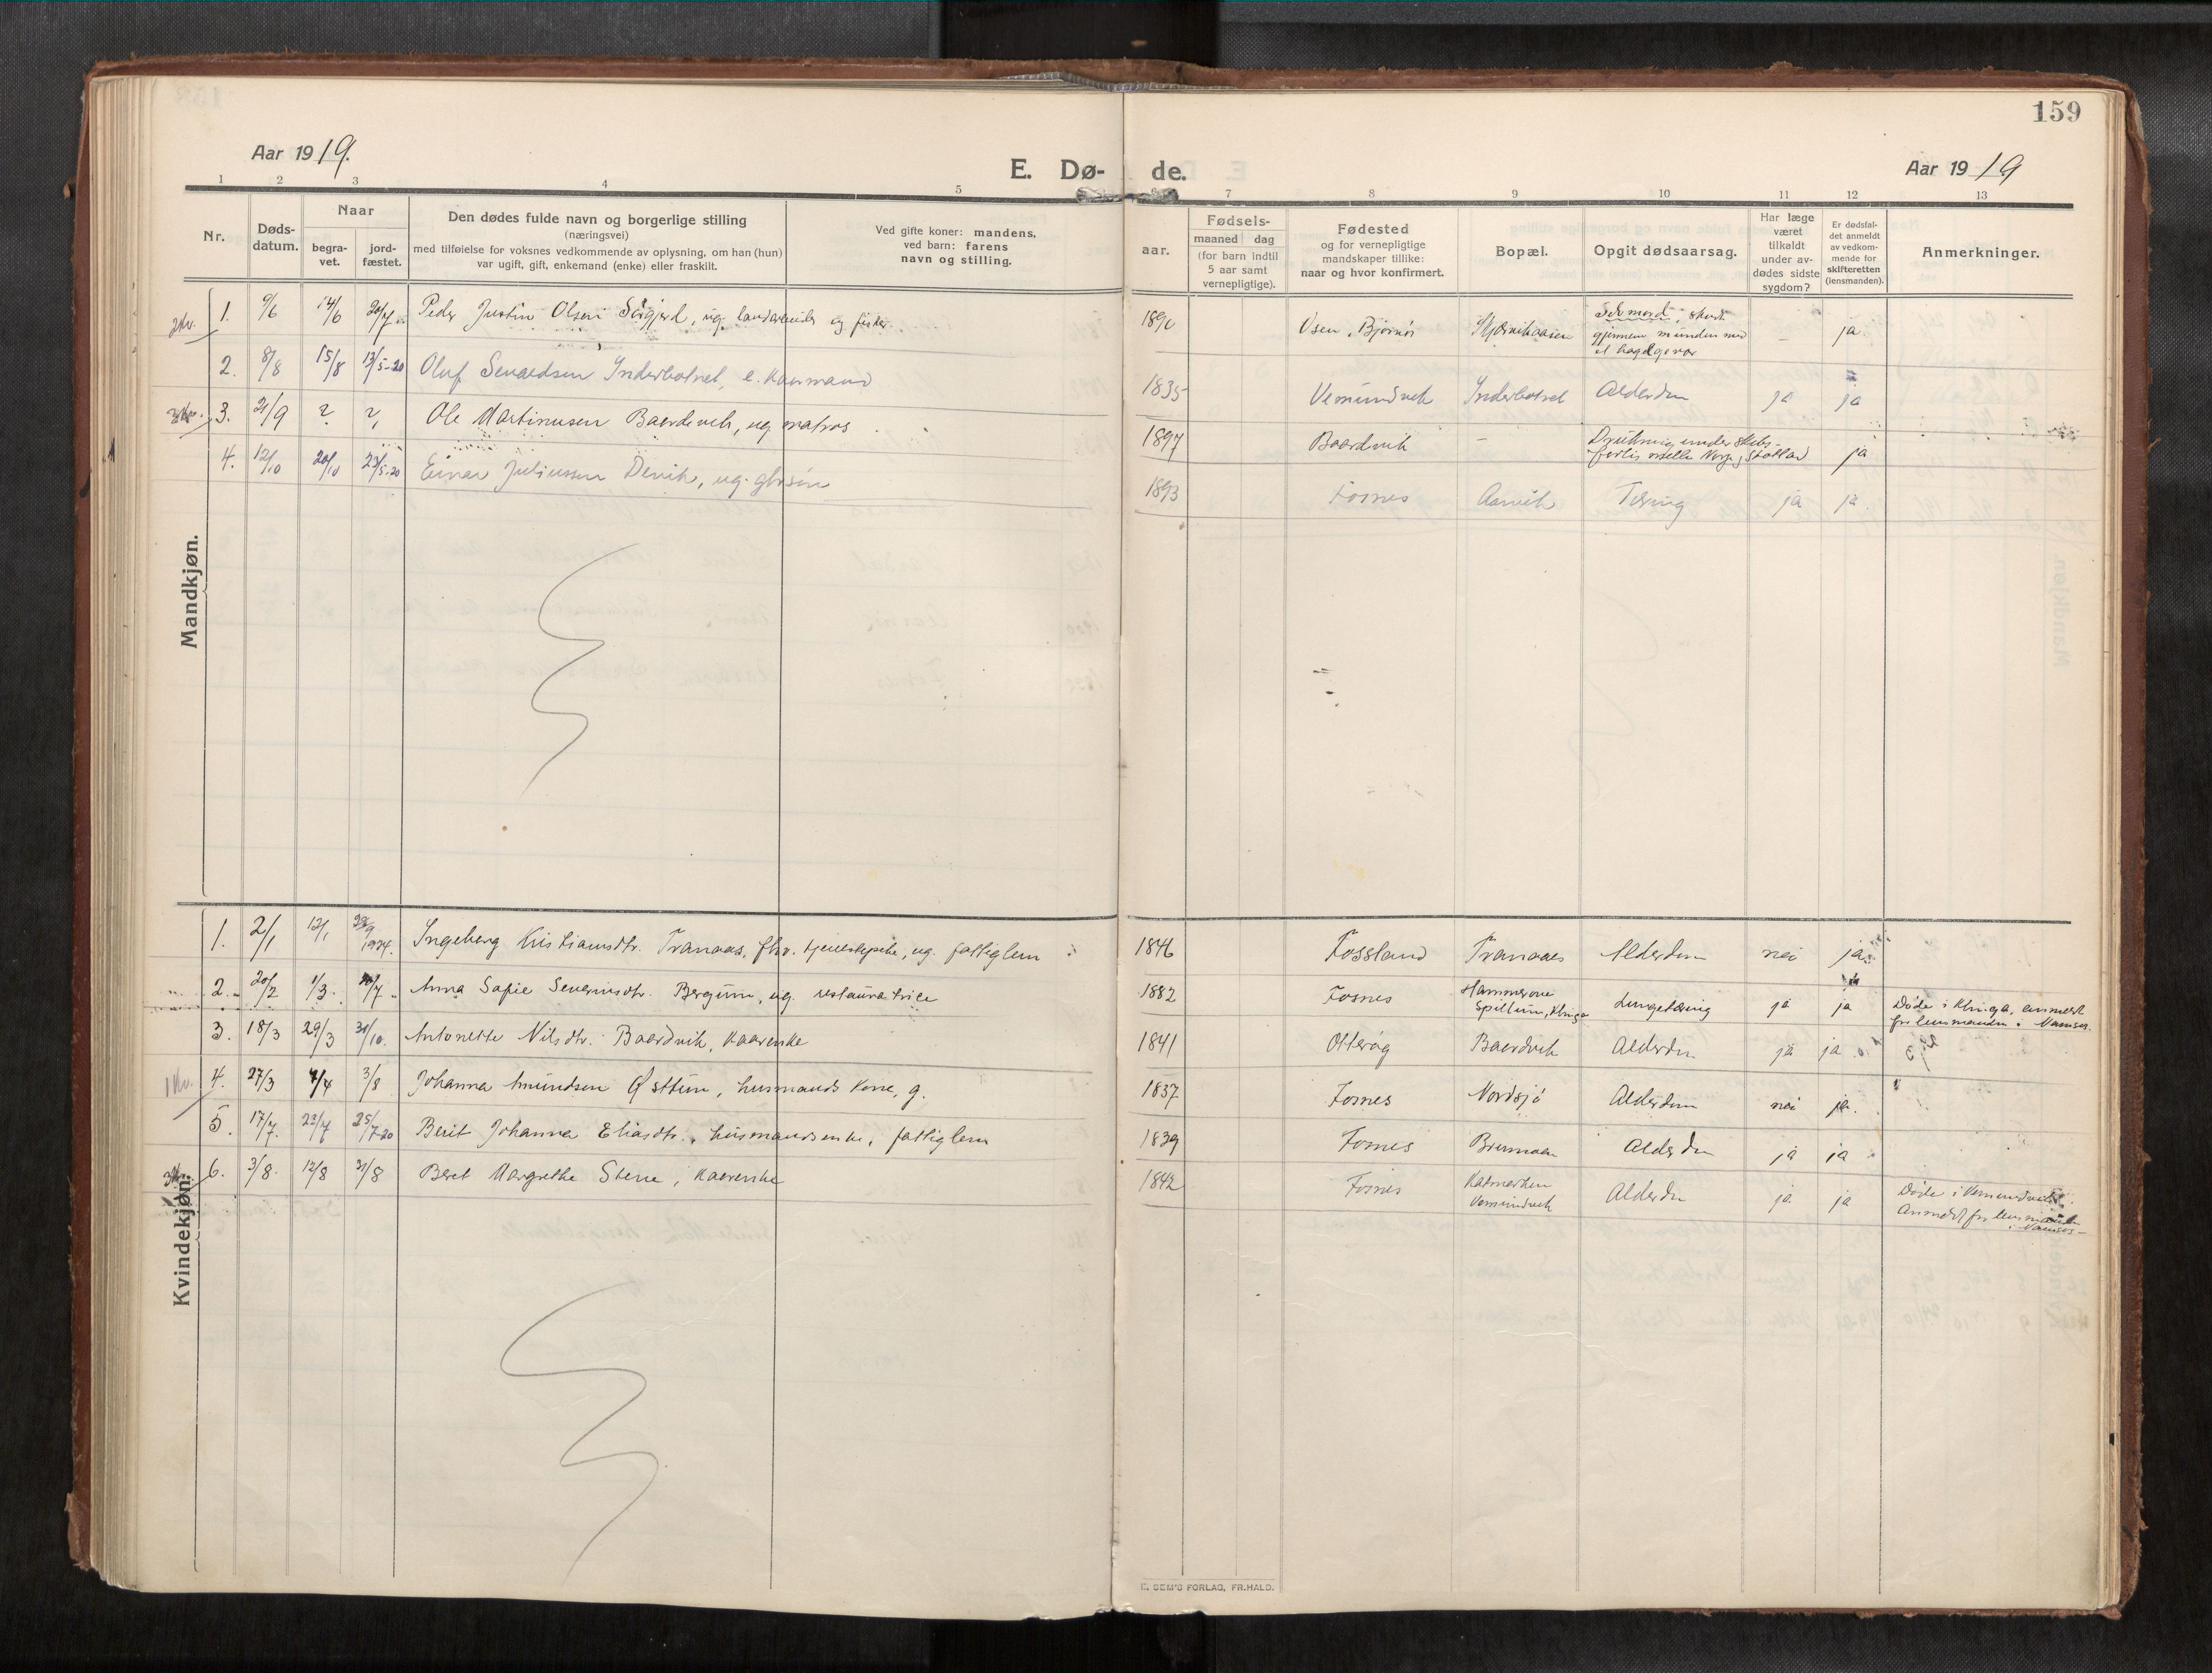 159
Aar 1919.
E. Dø- de.
Aar 1919
1 2 3 4 5 6 7 8 9 10 11 12 13
Nr.
Døds-
datum.
Naar
begra-
vet.
jord-
fæstet.
Den dødes fulde navn og borgerlige stilling
(næringsvei)
med tilføielse for voksnes vedkommende av oplysning, om han (hun)
var ugift, gift, enkemand (enke) eller fraskilt.
Ved gifte koner: mandens,
ved barn: farens
navn og stilling.
aar.
Fødsels-
maaned dag
(for barn indtil
5 aar samt
vernepligtige).
Fødested
og for vernepligtige
mandskaper tillike:
naar og hvor konfirmert.
Bopæl.
Opgit dødsaarsag.
Har læge
været
tilkaldt
under av-
dødes sidste
sygdom?
Er dødsfal-
det anmeldt
av vedkom-
mende for
skifteretten
(lensmanden).
Anmerkninger.
Mandkjøn.
1. 9/6 14/6 20/7 Peder Justin Olsen Sørgjerd, ug. og fisker 1890 Osen, Bjørnør Selvmord, skudt
gjennem munden med
et haglgevær – ja
2. 8/8 15/8 13/5-20 Oluf Inderbotnet, e. kaarmand 1835 Vemundvik Inderbotnet Alderdom ja ja
3. 21/9 ? ? Ole Martinusen Baardvik, ug. matros 1897 Baardvik – Drukning under skibs-
forlis mellem Norge, Skotland ja
4. 12/10 20/10 23/5-20 Einar Juliussen Devik, ug. gbr.søn 1893 Fosnes Aarvik Tæring ja ja
Kvindekjøn.
1. 2/1 12/1 28/9 1924. Ingeborg Kristiansdtr. Tranaas, fhv. tjenestepike, ug. fattiglem 1846 Fossland Tranaas Alderdom nei ja
2. 20/2 1/3 20/7 Anna Sofie Severinsdtr. Bergum, ug. restauratrice 1882 Fosnes Hammerøne
Spillum, Klinga Lungetæring ja ja Døde i Klinga, anmeldt
for lensmanden i Namsos.
3. 18/3 29/3 31/10. Antonette Nilsdtr. Baardvik, kaarenke 1841 Otterøy Baardvik Alderdom ja ja
4. 27/3 4/4 3/8 Johanna Amundsen Østtun, husmands kone, g. 1837 Fosnes Nordsjø Alderdom nei ja.
5. 17/7. 23/7 25/7-20 Berit Johanna Eliasdtr., husmandsenke, fattiglem 1839 Fosnes Bremnoen Alderdom ja ja
6. 3/8. 12/8 21/8 Beret Margrethe Stene, kaarenke 1842 Fosnes Katmarken
Vemundvik Alderdom ja ja Døde i Vemundvik.
Anmeldt for lensmanden
i Namsos –
E. SEM'S FORLAG, FR.HALD.